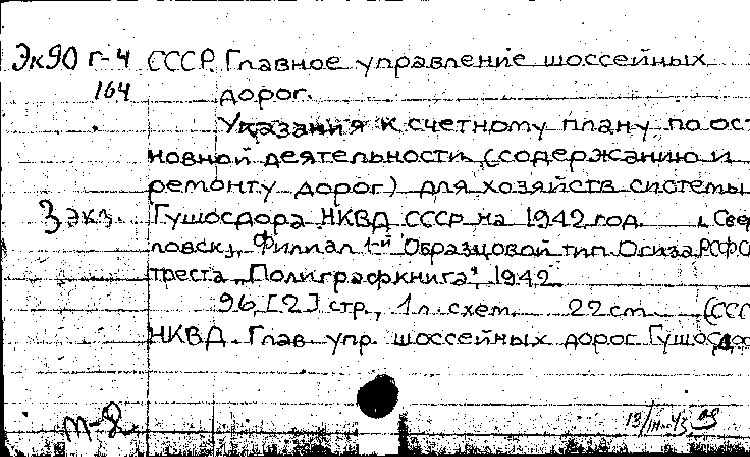 Эк90 г-4 СССР. Главное управление шоссейных
164 дорог.
Указания к счетному плану по ос
новной деятельности (содержанию и
ремонту дорог) для хозяйств системы
3 экз. Гушосдора НКВД СССР на 1942 год. [Свер
ловск], Филиал 1-й Образцовой тип. Огиза РСФС
треста "Полиграфкнига", 1942.
96, [2] стр., 1 л. схем. 22 см. (ССС
НКВД. Глав. упр. шоссейных дорог Гушосдор